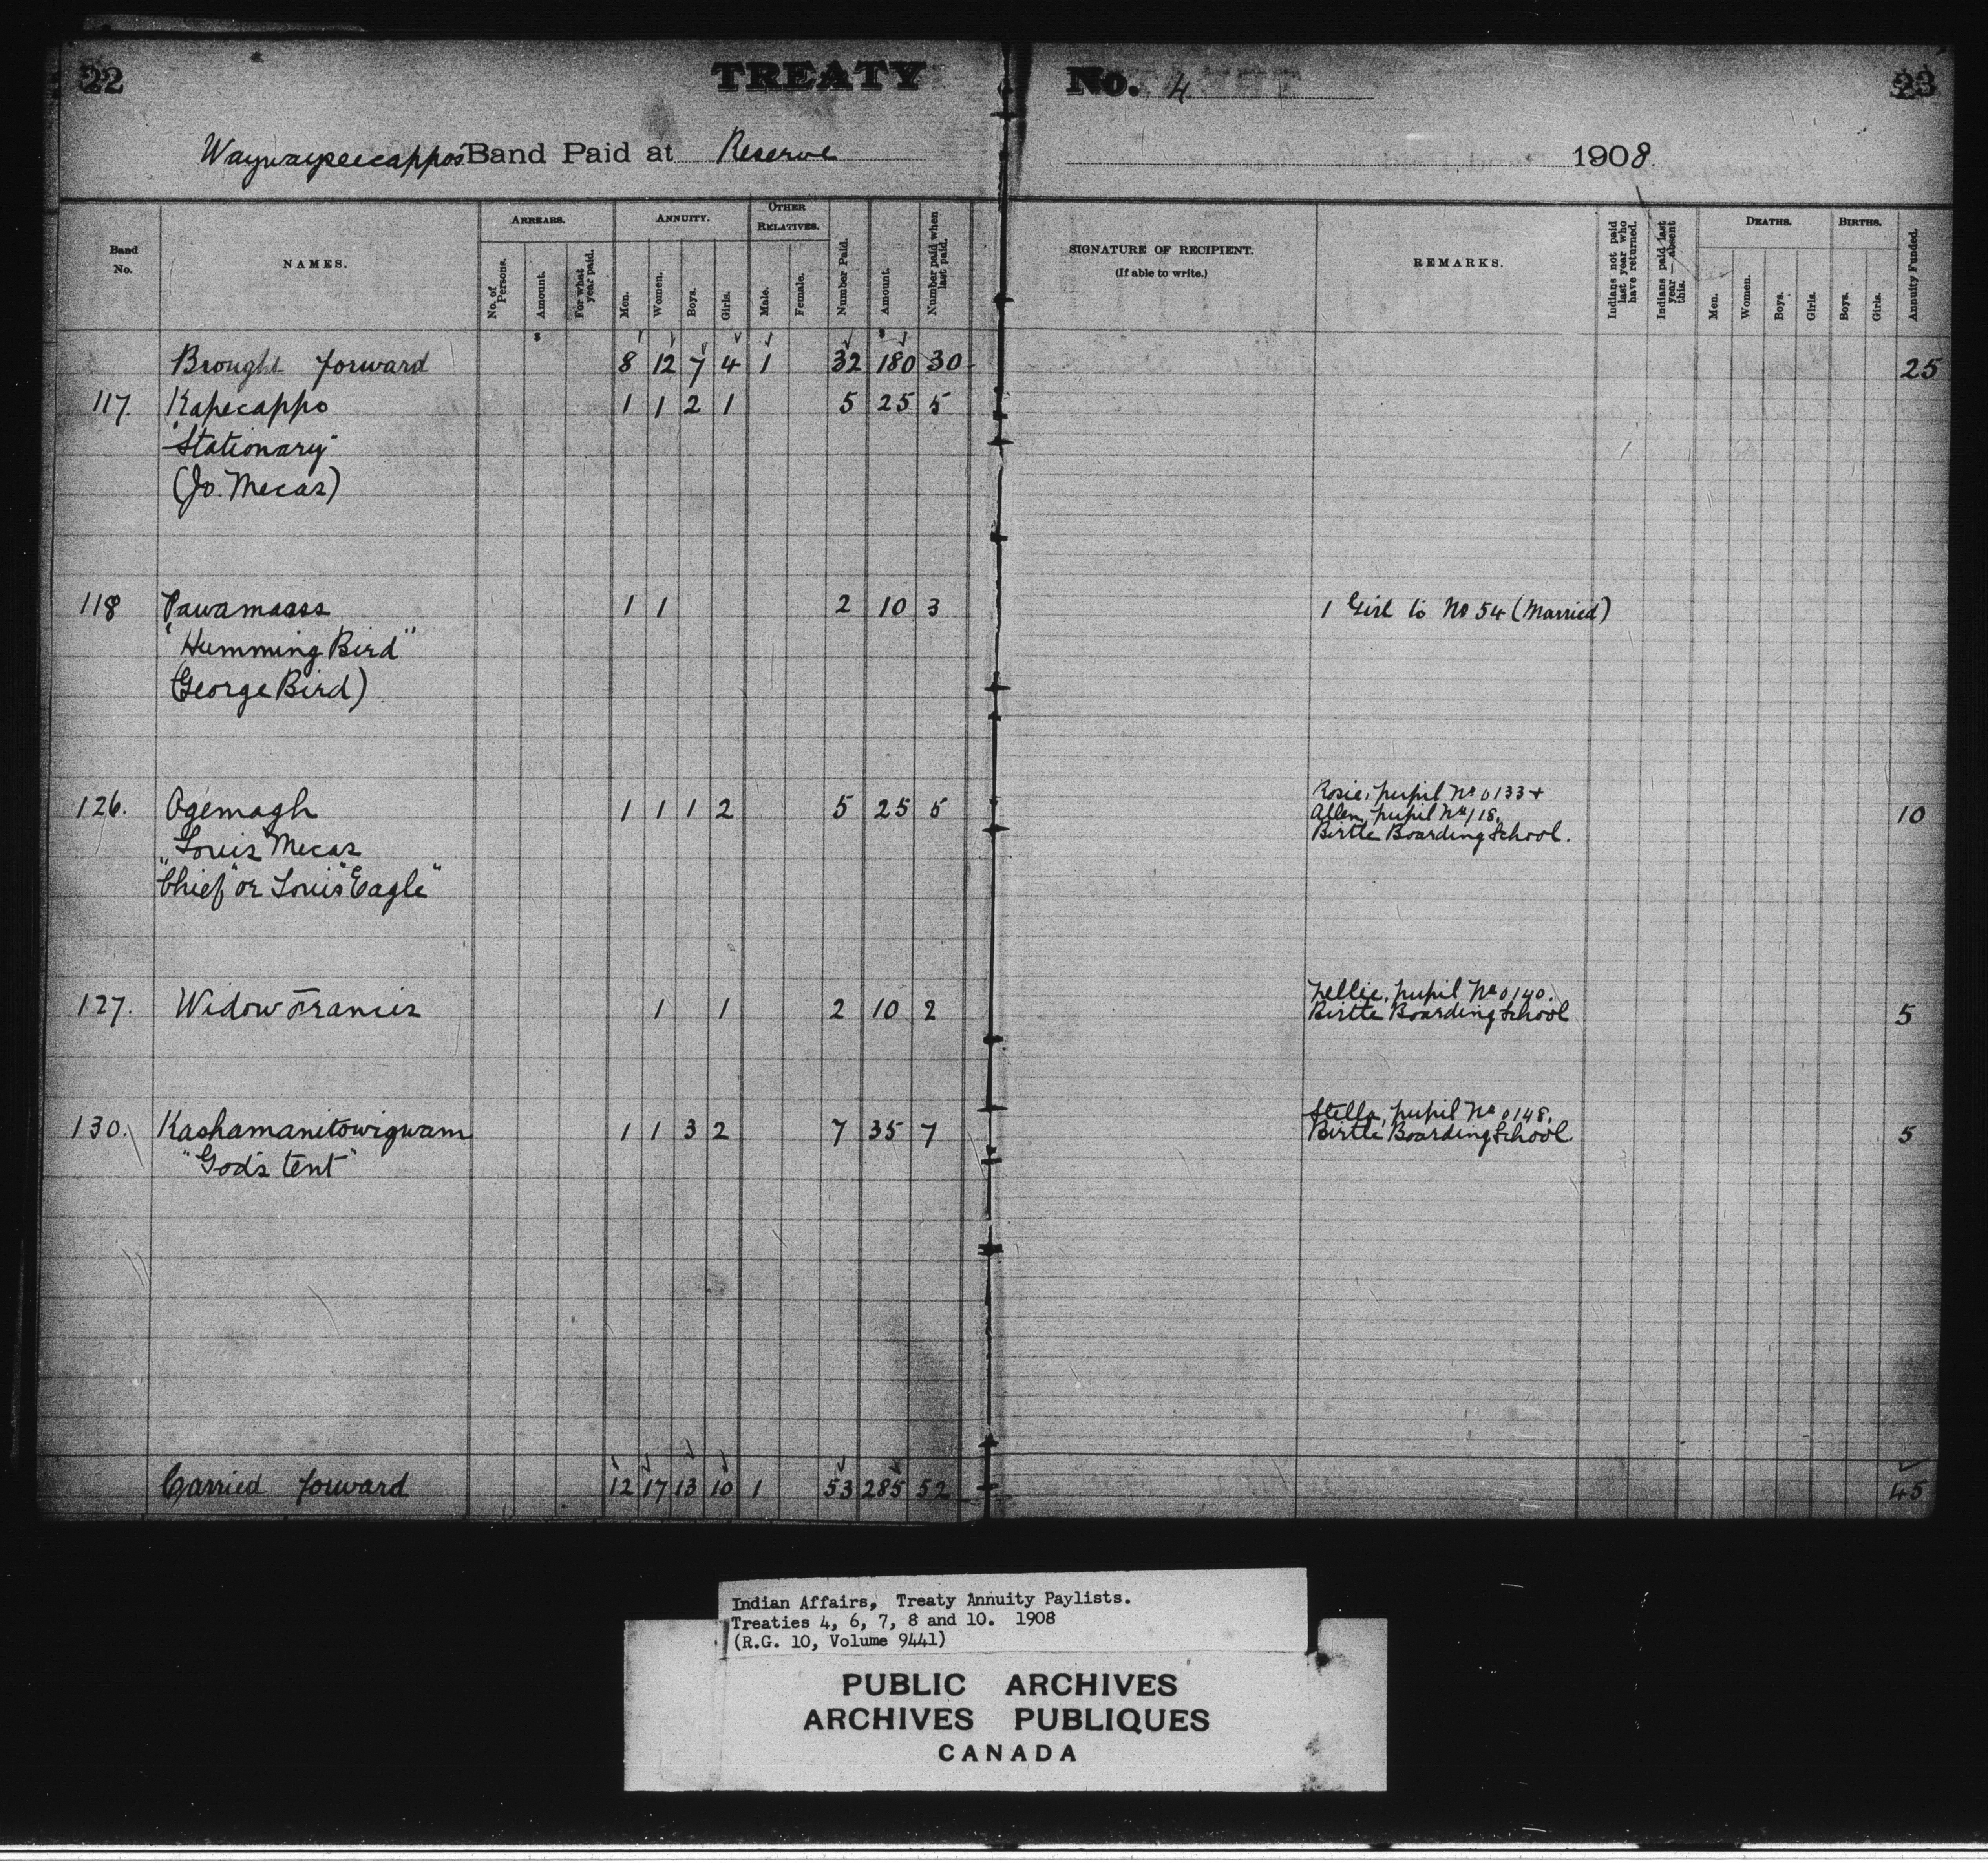 22 TREATY No. 4 23
Waywayseecappo's Band Paid at Reserve 1908.
Band No. NAMES. ARREARS. No. of Persons. Amount. For what year paid. ANNUITY. Men. Women. Boys. Girls. OTHER RELATIVES. Male. Female. Number Paid. Amount. Number paid when last paid. SIGNATURE OF RECIPIENT. (If able to write.) REMARKS. Indians not paid last year who have returned. Indians paid last year — absent this. DEATHS. Men. Women. Boys. Girls. BIRTHS. Boys. Girls. Annuity Funded.
$ $
Brought forward 8 12 7 4 1 32 180 30 25
117. Kapecappo 1 1 2 1 5 25 5
"Stationary"
(Jo. Mecas)
118 Pawamaass 1 1 2 10 3 1 Girl to No 54 (Married)
"Humming Bird"
(George Bird)
126. Ogemagh 1 1 1 2 5 25 5 Rosie, pupil No 0133 + 10
Allen, pupil No 118,
Birtle Boarding School.
Louis Mecas
"Chief" or Louis "Eagle"
127. Widow Francis 1 1 2 10 2 Nellie, pupil No 0140. 5
Birtle Boarding School
130. Kashamanitowigwam 1 1 3 2 7 35 7 Stella, pupil No 0148, 5
Birtle Boarding School
"God's tent"
Carried forward 12 17 13 10 1 53 285 52 45
Indian Affairs, Treaty Annuity Paylists.
Treaties 4, 6, 7, 8 and 10. 1908
(R.G. 10, Volume 9441)
PUBLIC ARCHIVES
ARCHIVES PUBLIQUES
CANADA